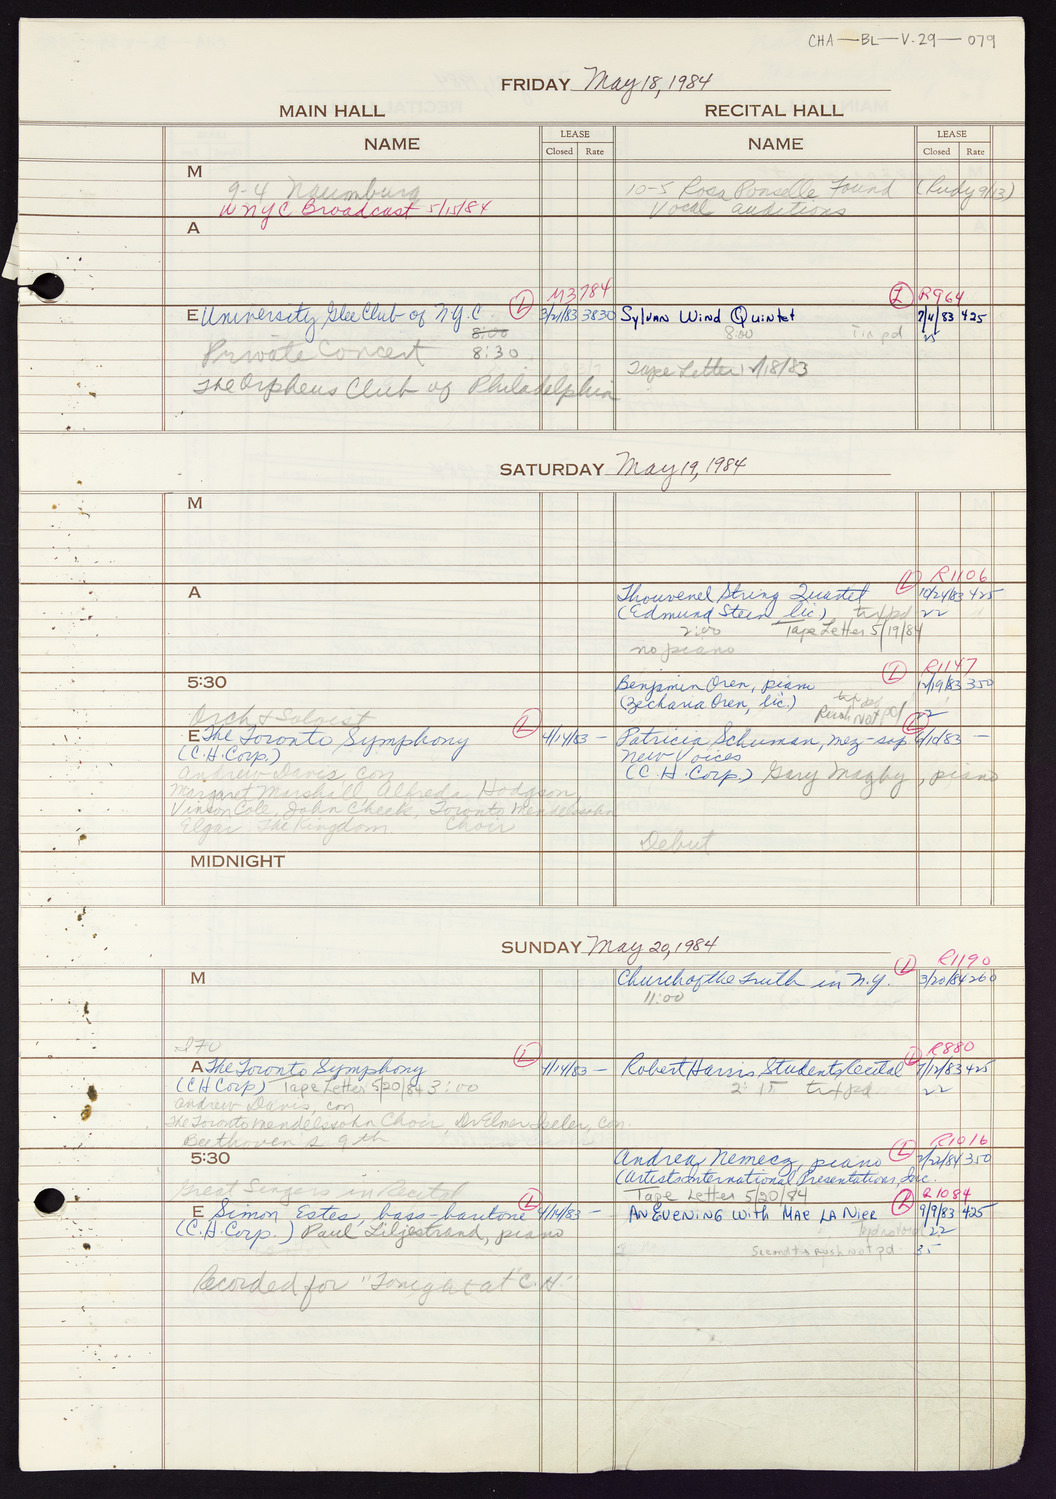 CHA—BL—V.29—079
FRIDAY May 18, 1984
MAIN HALL
RECITAL HALL
NAME
LEASE
Closed Rate
NAME
LEASE
Closed Rate
M
9-4 Naumburg
WNYC Broadcast 5/15/84
10-5 Rosa Ponselle Found (Rudy 9/13)
Vocal auditions
A
M3784
E University Glee Club of N.Y.C. L 3/21/83 3830
8:00
Private Concert 8:30
The Orpheus Club of Philadelphia
L R964
Sylvan Wind Quintet 7/4/83 425
8:00
Tape Letter 11/18/83
SATURDAY May 19, 1984
M
A
L R1106
Thouvenel String Quartet 10/24/83 425
(Edmund Stein lic) tx+pd 22
2:00 Tape Letter 5/19/84
no piano
5:30
L R1147
Benjamin Oren, piano 12/19/83 350
(Zecharia Oren, lic.) tx+pd
Rush Not pd 22
Orch & Soloist
E The Toronto Symphony L 4/14/83 —
(C.H. Corp.)
Andrew Davis, con
Margaret Marshall, Alfreda Hodgson,
Vinson Cole, John Cheek, Toronto Mendelssohn
Elgar The Kingdom Choir
L
Patricia Schuman, mez-sop 6/10/83 —
New Voices
(C.H. Corp.) Gary Magby, piano
Debut
MIDNIGHT
SUNDAY May 20, 1984
M
L R1190
Church of the Truth in N.Y. 3/20/84 260
11:00
A The Toronto Symphony L 4/14/83 —
(CH Corp) Tape Letter 5/20/84 3:00
Andrew Davis, con
The Toronto Mendelssohn Choir, Dr Elmer Iseler, Con.
Beethoven's 9th
L R880
Robert Harris Students Recital 7/12/83 425
2:15 tx+pd 22
5:30
L R1016
Andrea Nemecz, piano 2/22/84 350
(Artists International Presentations, Inc.
Tape Letter 5/20/84
Great Singers in Recital
E Simon Estes, bass-baritone L 4/14/83 —
(C.H. Corp.) Paul Liljestrand, piano
Recorded for "Tonight at C.H."
L R1084
AN EVENING WITH MAE LA NIER 9/9/83 425
22
Second tx Rush Not pd 35